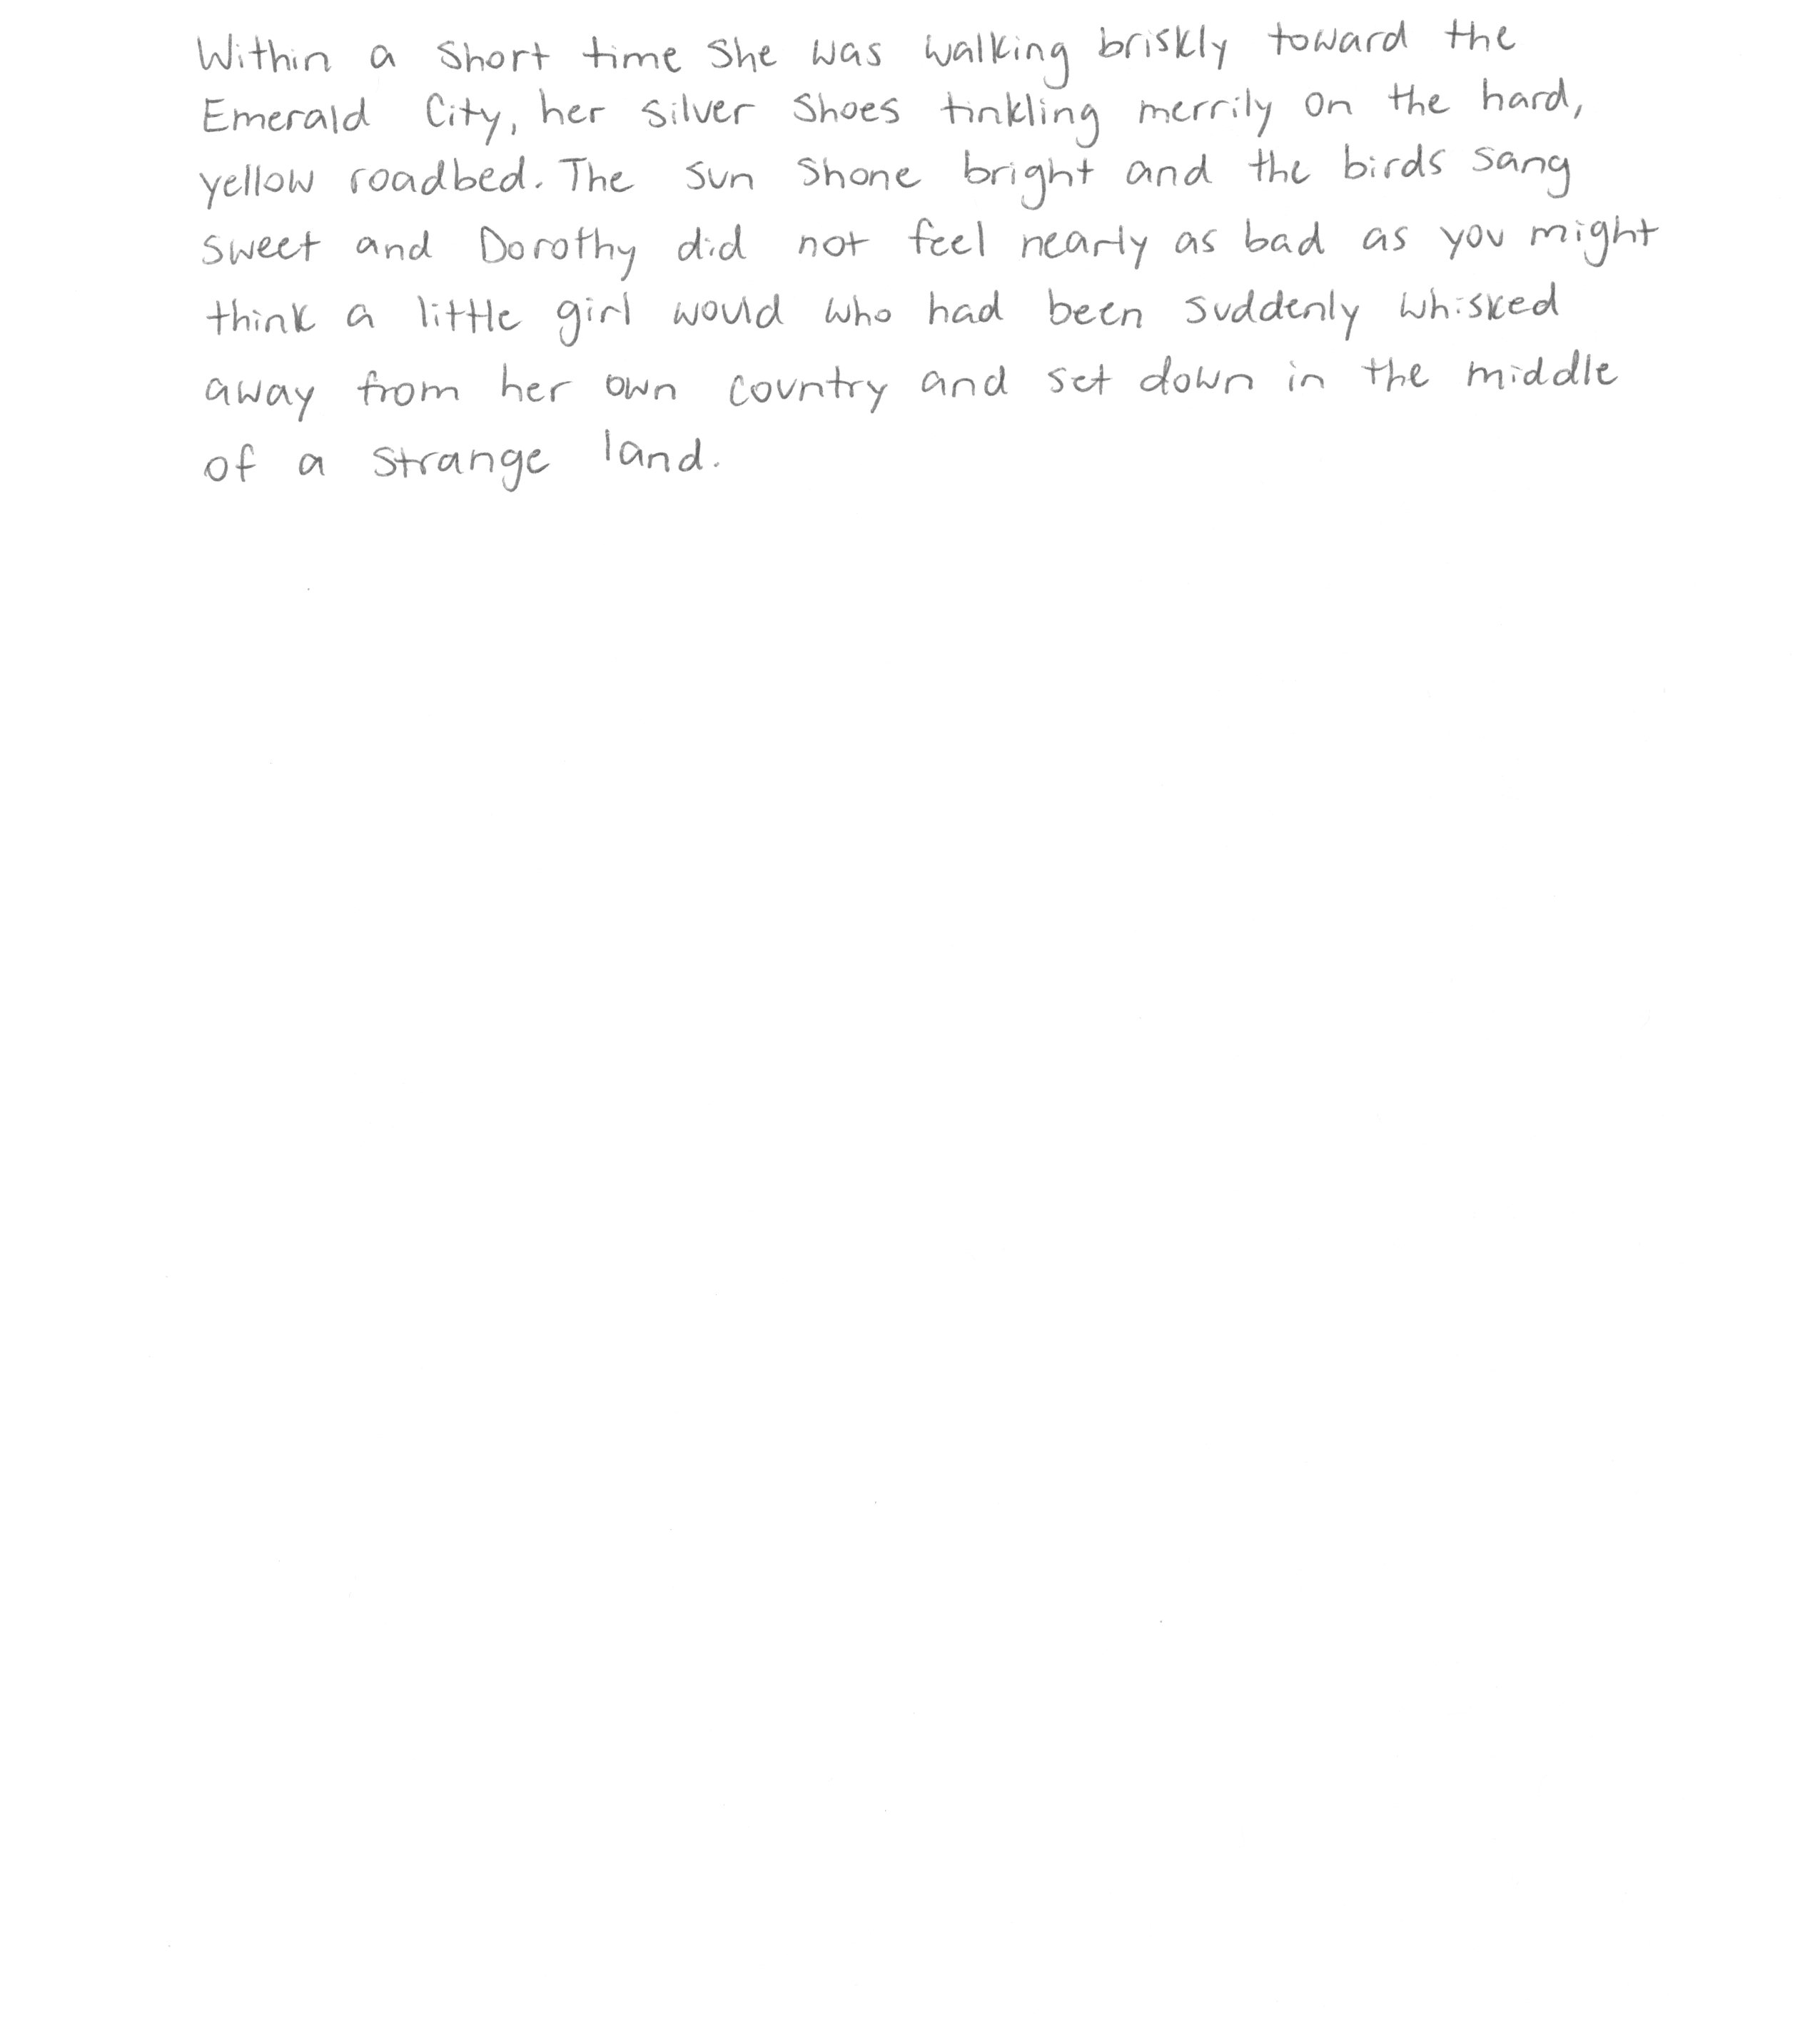 Within a short time she was walking briskly toward the
Emerald City, her silver shoes tinkling merrily on the hard,
yellow roadbed. The sun shone bright and the birds sang
sweet and Dorothy did not feel nearly as bad as you might
think a little girl would who had been suddenly whisked
away from her own country and set down in the middle
of a strange land.